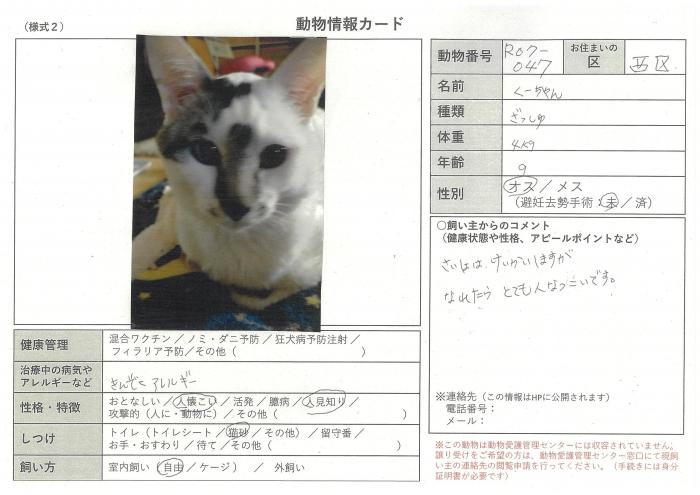 （様式２）
動物情報カード
動物番号 R07-047 お住まいの区 西区
名前 くーちゃん
種類 ざっしゅ
体重 4kg
年齢 9
性別 オス／メス
（避妊去勢手術：未／済）
○飼い主からのコメント
（健康状態や性格、アピールポイントなど）
さいしょは、けいかいしますが
なれたら とても人なつっこいです。
※連絡先（この情報はHPに公開されます）
電話番号：
メール：
健康管理 混合ワクチン／ノミ・ダニ予防／狂犬病予防注射／
フィラリア予防／その他（ ）
治療中の病気やアレルギーなど きんぞくアレルギー
性格・特徴 おとなしい／人懐こい／活発／臆病／人見知り／
攻撃的（人に・動物に）／その他（ ）
しつけ トイレ（トイレシート／猫砂／その他）／留守番／
お手・おすわり／待て／その他（ ）
飼い方 室内飼い（自由／ケージ） ／ 外飼い
※この動物は動物愛護管理センターには収容されていません。
譲り受けをご希望の方は、動物愛護管理センター窓口にて現飼
い主の連絡先の閲覧申請を行ってください。（手続きには身分
証明書が必要です）